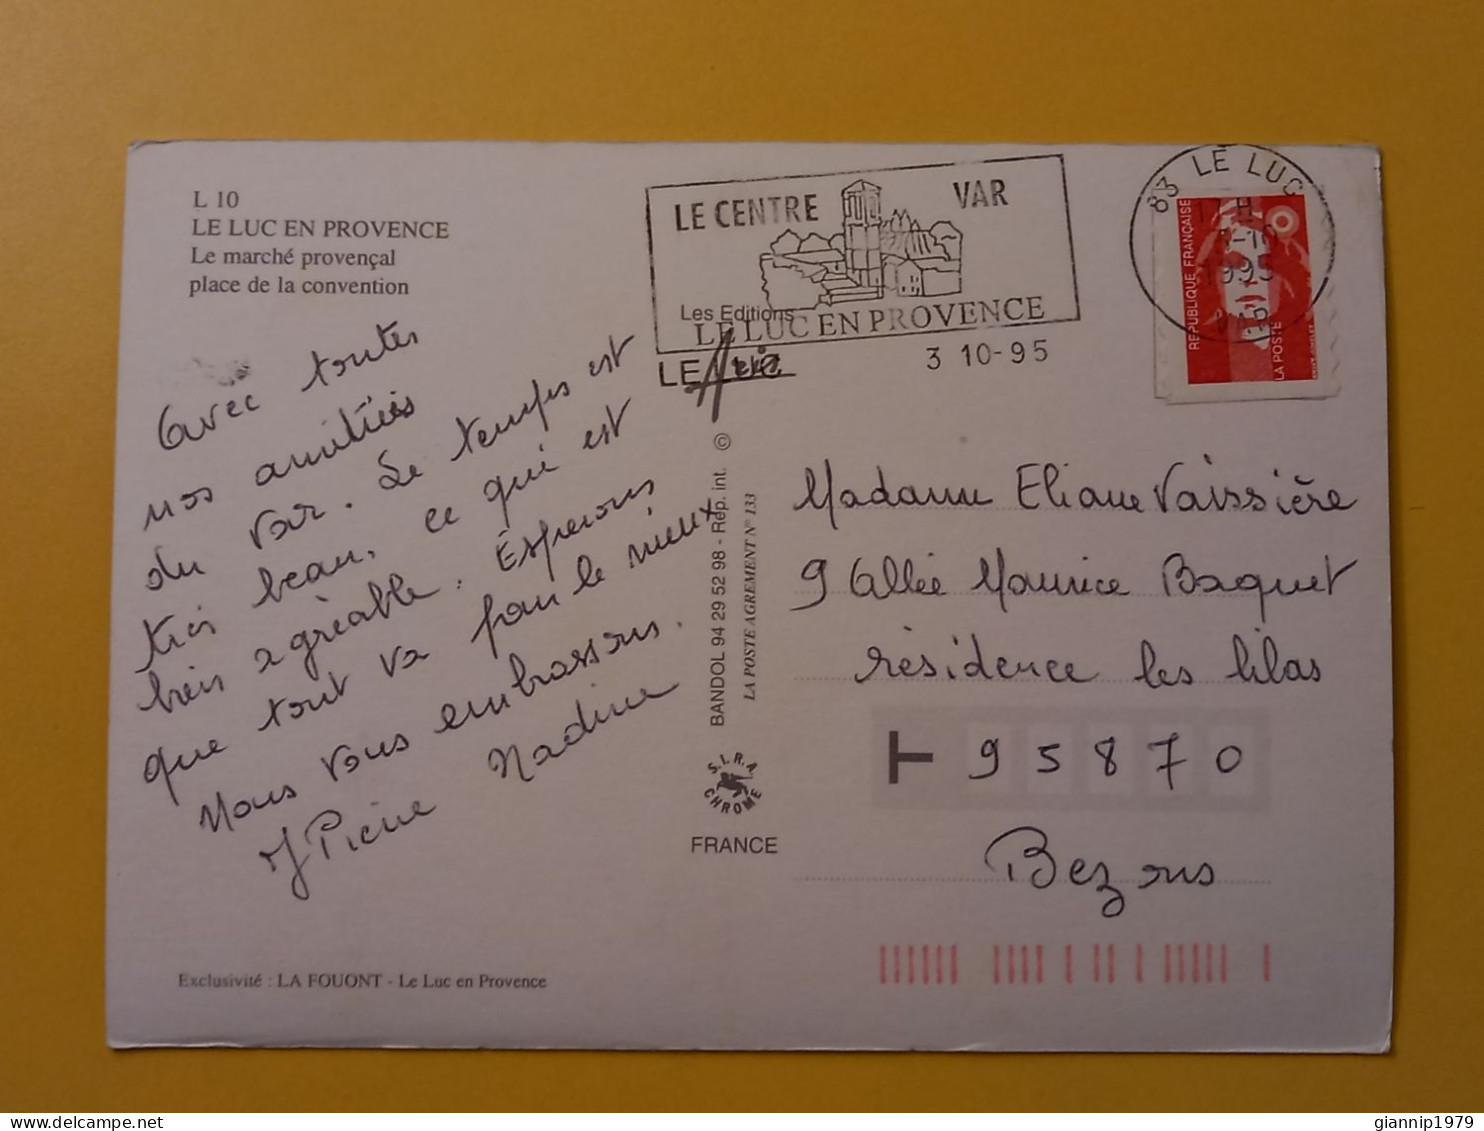 L 10
LE LUC EN PROVENCE
Le marché provençal
place de la convention
Avec toutes
nos amitiés
du Var. Le temps est
très beau, ce qui est
bien agréable. Espérons
que tout va pour le mieux
Nous vous embrassons.
J Pierre Nadine
Exclusivité : LA FOUONT - Le Luc en Provence
LE CENTRE VAR
LE LUC EN PROVENCE
3 10-95
Les Editions
LE
BANDOL 94 29 52 98 - Rep. int. ©
LA POSTE AGREMENT N° 133
S.I.R.A.
CHROME
FRANCE
83 LE LUC
1995
VAR
REPUBLIQUE FRANÇAISE
LA POSTE
Madame Eliane Vaissière
9 Allée Maurice Baquet
résidence les lilas
T 95870
Bezons
giannip1979